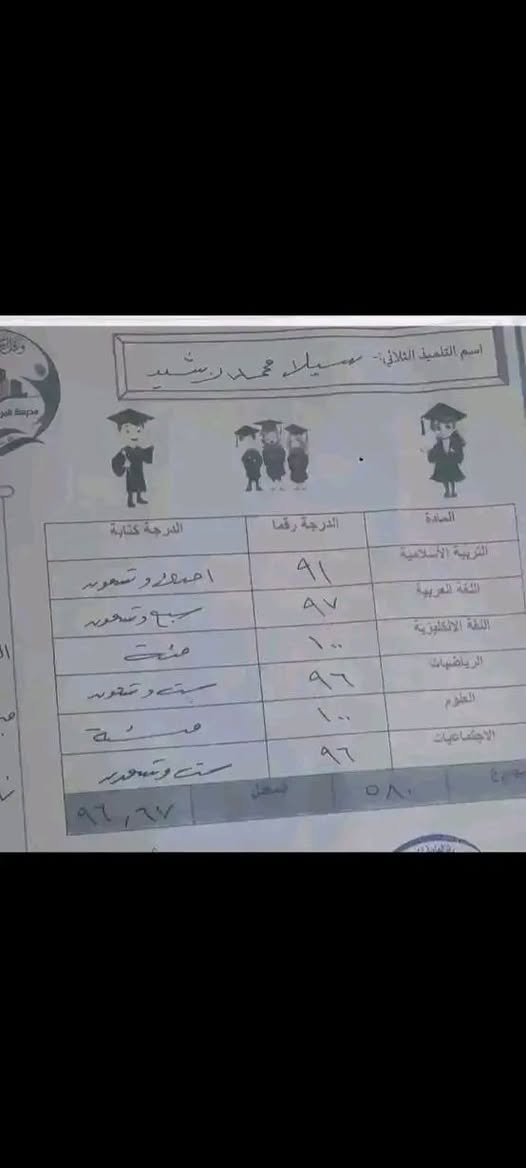 اسم التلميذ الثلاثي:- سيلا محمد رشيد
المادة الدرجة رقما الدرجة كتابة
التربية الأسلامية ٩١ احدى وتسعون
اللغة العربية ٩٧ سبع وتسعون
اللغة الانكليزية ١٠٠ مئة
الرياضيات ٩٦ ست وتسعون
العلوم ١٠٠ مئة
الاجتماعيات ٩٦ ست وتسعون
٥٨٠ المعدل ٩٦,٦٧